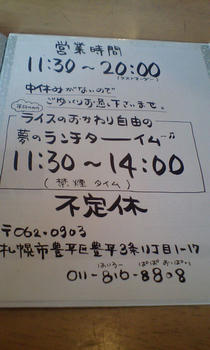 営業時間
11:30～20:00
(ラストオーダー)
中休みがないので
ごゆっくりお過し下さいませ。
ライスのおかわり自由の
夢のランチターイム♫
11:30～14:00
(禁煙タイム)
不定休
〒062-0903
札幌市豊平区豊平3条11丁目1-17
はいろー ぱぱおっぱい
011-816-8808